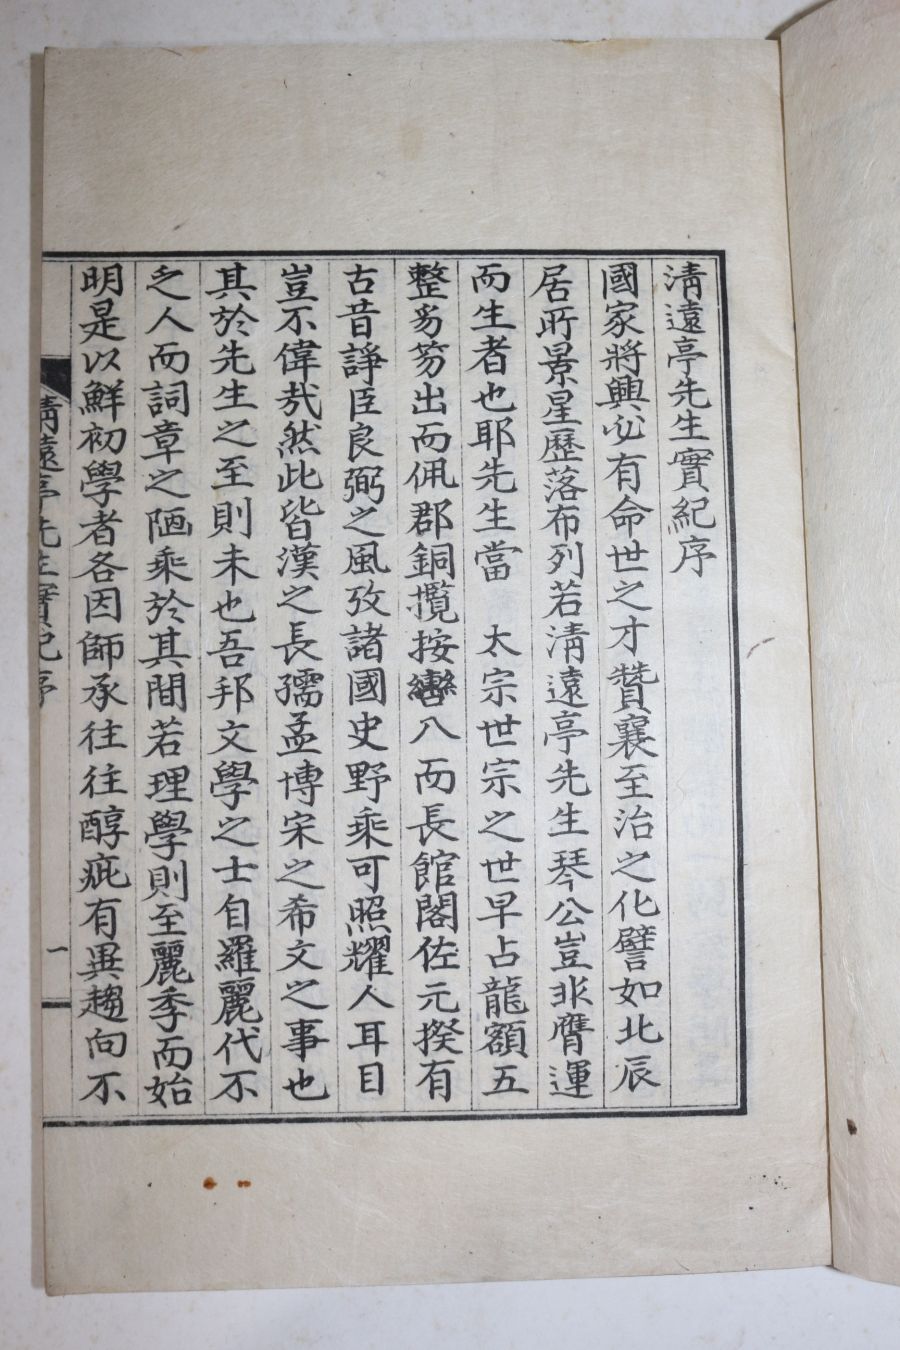 淸遠亭先生實紀序
國家將興必有命世之才贊襄至治之化譬如北辰
居所景星歷落布列若淸遠亭先生琴公豈非膺運
而生者也耶先生當 太宗世宗之世早占龍額五
整豸笏出而佩郡銅攬按轡八而長館閣佐元揆有
古昔諍臣良弼之風攷諸國史野乘可照耀人耳目
豈不偉哉然此皆漢之長孺孟博宋之希文之事也
其於先生之至則未也吾邦文學之士自羅麗代不
乏人而詞章之陋乘於其間若理學則至麗季而始
明是以鮮初學者各因師承往往醇疵有異趨向不
淸遠亭先生實紀序
一